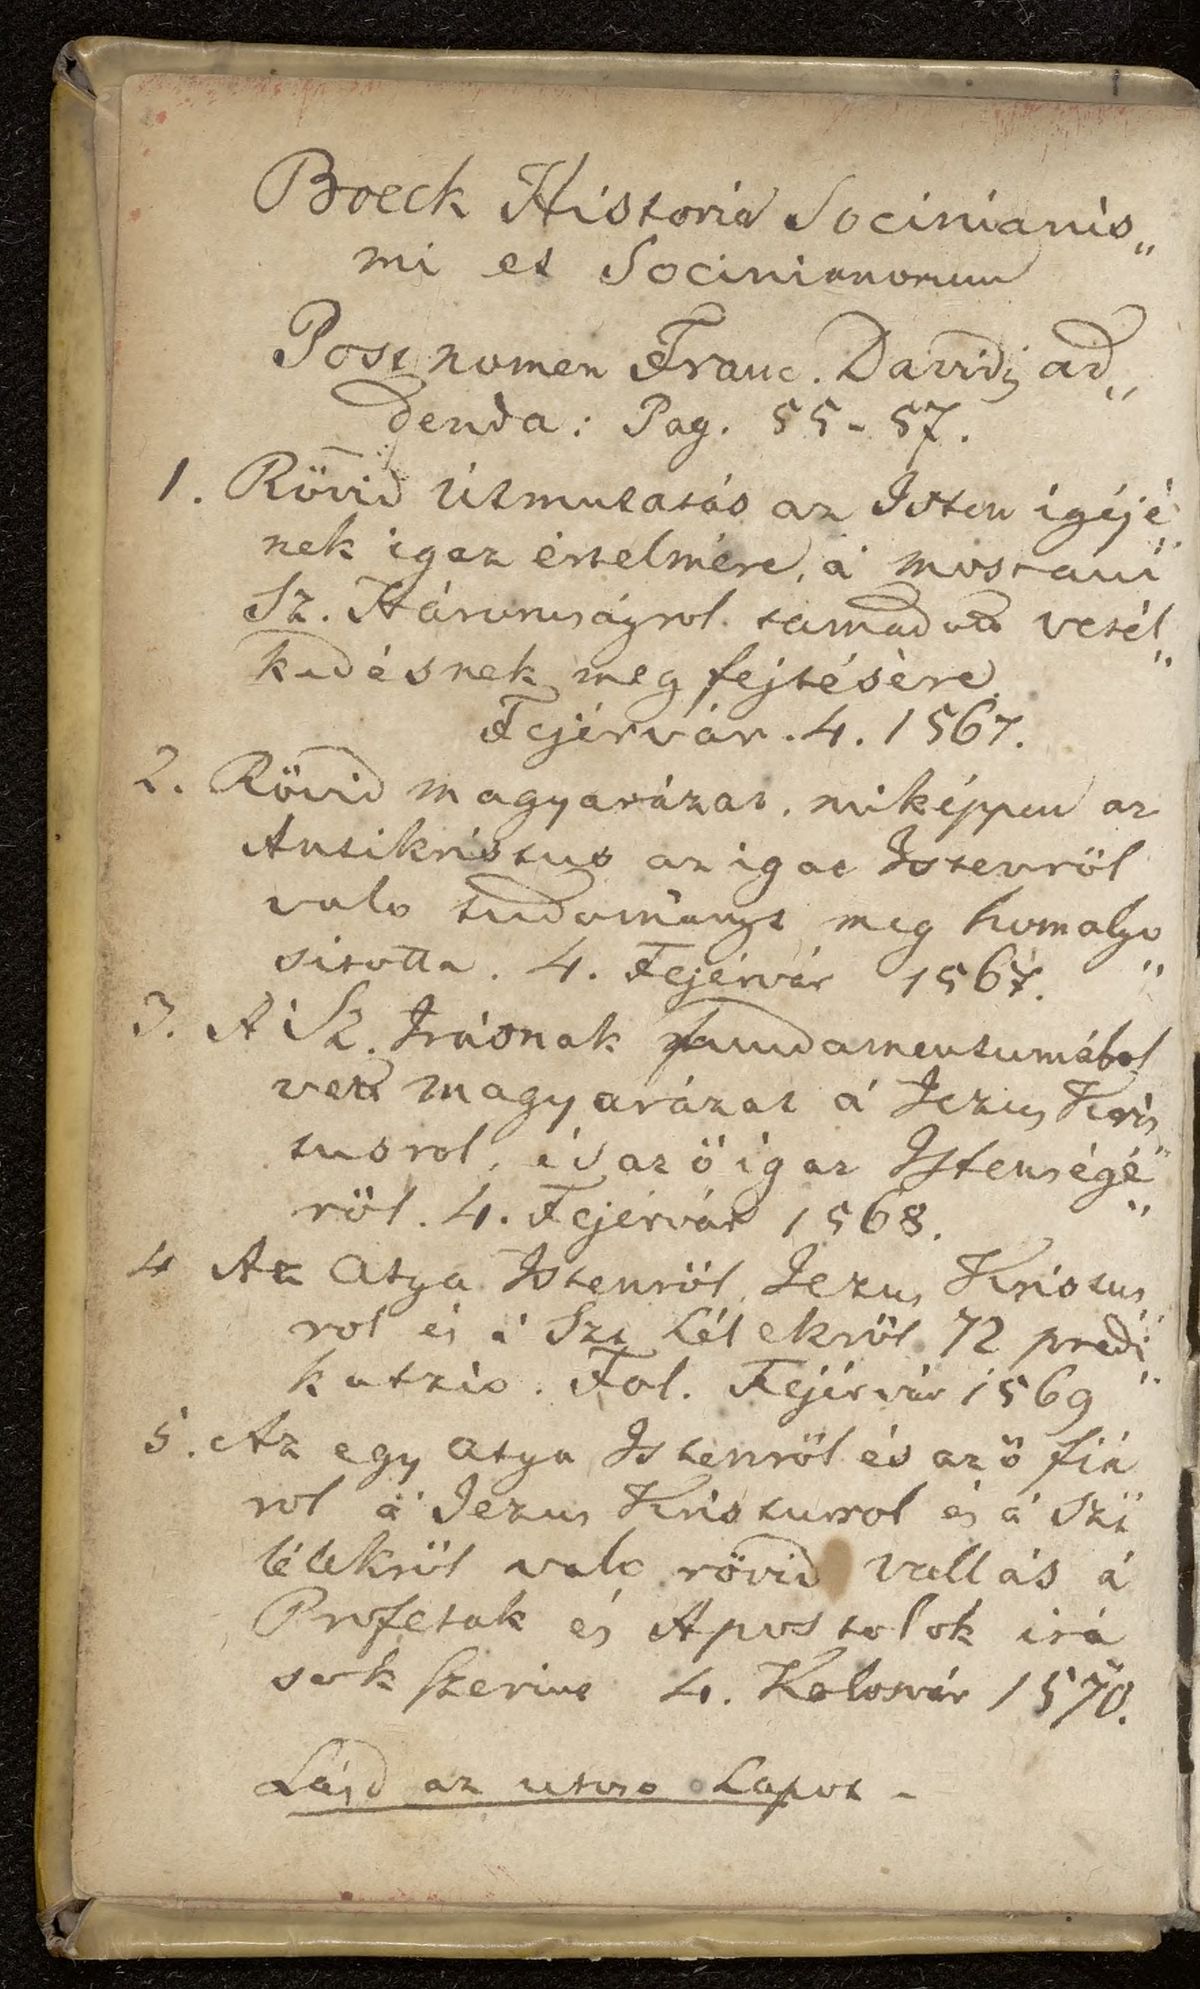 Boeck Historia Socinianis„
mi et Socinianorum
Post nomen Franc. Davidj ad„
denda: Pag. 55-57.
1. Rövid útmutatás az Isten igéjé„
nek igaz értelmére, á mostani
Sz. Háromságrol támadott vetél„
kedésnek meg fejtésére
Fejérvár. 4. 1567.
2. Rövid magyarázat, miképpen az
Antikristus az igaz Istenröl
valo tudományt meg homalyo„
sitotta. 4. Fejérvár 1567.
3. A' Sz. Irásnak fundamentumábol
vett magyarázat á Jezus Kris„
tusrol, és az ö igaz Istenségé„
röl. 4. Fejérvár 1568.
4 Az Atya Istenröl, Jezus Kristus„
rol és á Szt Lélekröl 72 predi„
katzio. Fol. Fejérvár 1569
5. Az egy Atya Istenröl és az ö fiá
rol á Jezus Kristusrol és á Szt
lélekröl valo rövid vallás á
Profetak és Apostolok irá
sok szerint 4. Kolosvár 1570.
Lásd az utolso Lapot -